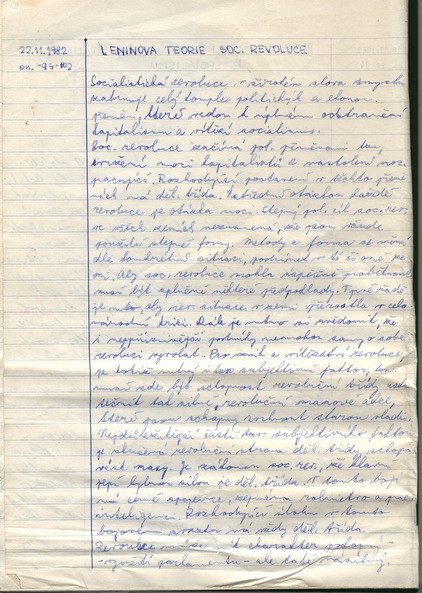 22.11.1982
LENINOVA TEORIE SOC. REVOLUCE
on. -94-102
Socialistická revoluce v širokém slova smyslu
zahrnuje celý komplex politických a ekonom.
přeměn, které vedou k úplnému odstranění
kapitalismu a vítězí socialismus.
Soc. revoluce začíná pol. přeměnami tzn.
svržení moci kapitalistů a nastolení moc
pracujících. Rozhodující postavení v těchto přemě
nách má děl. třída. Základní otázkou každé
revoluce je otázka moci. Stejný pol. cíl soc. rev.
ve všech zemích neznamená, že jsou všude
použity stejné formy. Metody a forma se mění
dle konkrétní situace, podmínek v té či oné ze
mi. Aby soc. revoluce mohla úspěšně proběhnout
musí být splněné některé předpoklady. V prvé řadě
je nutno, aby rev. situace v zemi přerostla v celo
národní krizi. Dále je nutno si uvědomit, že
i nejpříznivější podmínky nemohou samy o sobě
revoluci vyvolat. Pro vznik a vítězství revoluce
je totiž nutný i tzv. subjektivní faktor,
musí zde být schopnost revoluční třídy
tečnit tak silné revoluční masové akce,
které jsou schopny svrhnout starou vládu.
Nejdůležitější částí tzv. subjektivního faktoru
je zkušená revoluční strana děl. třídy schopa
vést masy. Je zákonem soc. rev., že hlavní
její hybnou silou je děl. třída. V tomto boji
má cenné spojence, zejména rolnictvo a prac.
inteligenci. Rozhodující úlohu v tomto
bojovém svazku má vždy děl. třída.
Revoluce může mít charakter pokojný -
- využití parlamentu - ale také násilný.